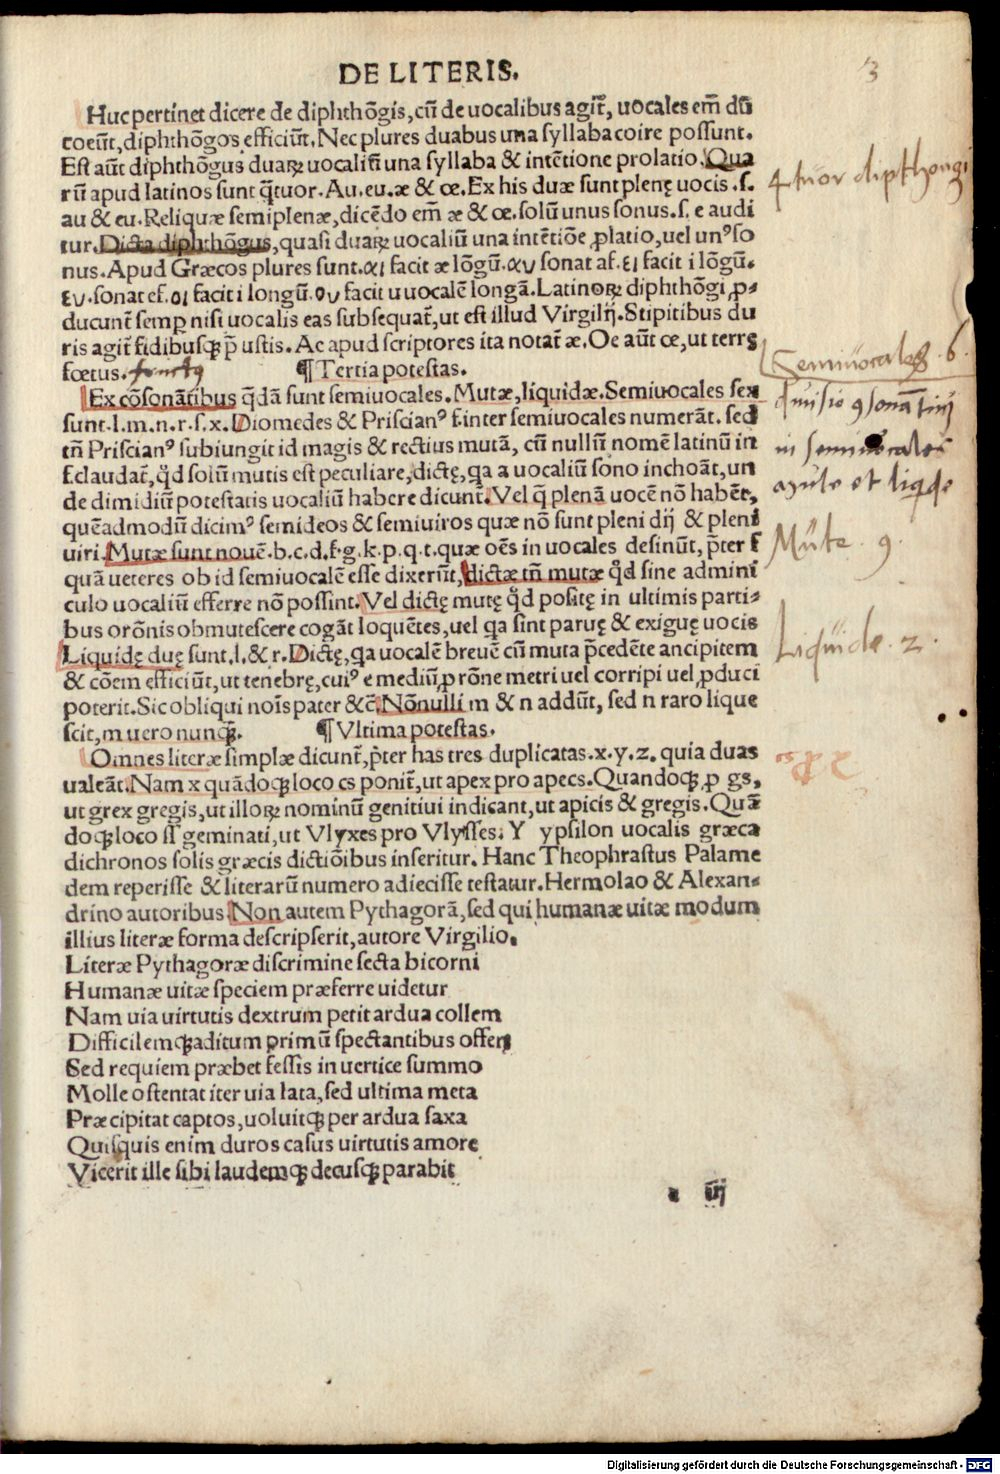 DE LITERIS.
3
Huc pertinet dicere de diphthõgis, cũ de uocalibus agit᷑, uocales em̃ dũ
coeũt, diphthõgos efficiũt. Nec plures duabus una syllaba coire possunt.
Est aũt diphthõgus duaꝝ uocaliũ una syllaba & intẽtione prolatio. Qua
rũ apud latinos sunt q̃tuor. Au. eu. æ & œ. Ex his duæ sunt plenę uocis .ſ.
au & eu. Reliquæ semiplenæ, dicẽdo em̃ æ & œ. solũ unus sonus .ſ. e audi
tur. Dicta diphthõgus, quasi duaꝝ uocaliũ una intẽtiõe ꝓlatio, uel unꝰ so
nus. Apud Græcos plures sunt. αι facit æ lõgũ. αυ sonat af. ει facit i lõgũ.
ευ. sonat ef. οι facit i longũ. ου facit u uocalẽ longã. Latinoꝝ diphthõgi ꝓ-
ducunt᷑ semp̱ nisi uocalis eas subsequat᷑, ut est illud Virgilij. Stipitibus du
ris agit᷑ sudibusqꝫ p̃ustis. Ac apud scriptores ita notat᷑ æ. Oe aũt œ, ut terrę
fœtus.
¶ Tertia potestas.
Ex cõsonãtibus q̃dã sunt semiuocales. Mutæ, liquidæ. Semiuocales sex
sunt. l. m. n. r. s. x. Diomedes & Priscianꝰ f. inter semiuocales numerãt. sed
tñ Priscianꝰ subiungit id magis & rectius mutã, cũ nullũ nomẽ latinũ in
f. claudat᷑, qd̓ soliũ mutis est peculiare, dictę, qa a uocaliũ sono inchoãt, un
de dimidiũ potestatis uocaliũ habere dicunt᷑. Vel q̃ plenã uocẽ nõ habẽt,
quẽadmodũ dicimꝰ semideos & semiuiros quæ nõ sunt pleni dij & pleni
uiri. Mutæ sunt nouẽ. b. c. d. f. g. k. p. q. t. quæ oẽs in uocales desinũt, p̃ter f
quã ueteres ob id semiuocalẽ esse dixerũt, dictæ tñ mutæ qd̓ sine admini
culo uocaliũ efferre nõ possint. Vel dictę mutę qd̓ positę in ultimis parti-
bus orõnis obmutescere cogãt loquẽtes, uel qa sint paruę & exiguę uocis
Liquidę duę sunt, l. & r. Dictę, qa uocalẽ breuẽ cũ muta p̃cedẽte ancipitem
& cõem efficiũt, ut tenebrę, cuiꝰ e mediũ, ꝓ rõne metri uel corripi uel ꝓduci
poterit. Sic obliqui noĩs pater &c̃. Nõnulli m & n addũt, sed n raro lique
scit, m uero nunqꝫ.
¶ Vltima potestas.
Omnes literæ simplæ dicunt᷑, p̃ter has tres duplicatas. x. y. z. quia duas
ualeãt. Nam x quãdoqꝫ loco cs ponit᷑, ut apex pro apecs. Quandoqꝫ ꝓ gs,
ut grex gregis, ut illoꝝ nominũ genitiui indicant, ut apicis & gregis. Quã
doqꝫ loco ss geminati, ut Vlyxes pro Vlysses. Y ypsilon uocalis græca
dichronos solis græcis dictiõibus inseritur. Hanc Theophrastus Palame
dem reperisse & literarũ numero adiecisse testatur. Hermolao & Alexan-
drino autoribus Non autem Pythagorã, sed qui humanæ uitæ modum
illius literæ forma descripserit, autore Virgilio.
Literæ Pythagoræ discrimine secta bicorni
Humanæ uitæ speciem præferre uidetur
Nam uia uirtutis dextrum petit ardua collem
Difficilemqꝫ aditum primũ spectantibus offert
Sed requiem præbet fessis in uertice summo
Molle ostentat iter uia lata, sed ultima meta
Præcipitat captos, uoluitqꝫ per ardua saxa
Quisquis enim duros casus uirtutis amore
Vicerit ille sibi laudemqꝫ decusqꝫ parabit
a iij
4tuor dipthongi
Semiuocales. 6.
diuisio 9sonantiũ
in semiuocales
mute et liqde
Mute. 9.
Liquide. 2.
Digitalisierung gefördert durch die Deutsche Forschungsgemeinschaft - DFG